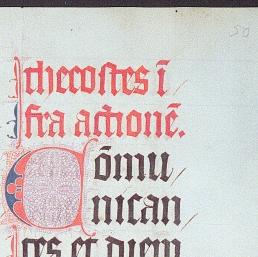 thecostes ī
fra actionē.
Cōmu
nican
tes et diem
50